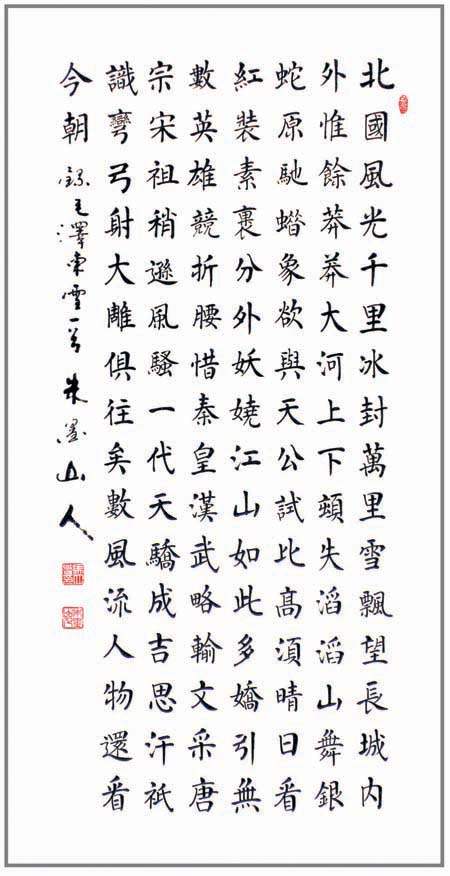 北國風光千里冰封萬里雪飄望長城內
外惟餘莽莽大河上下頓失滔滔山舞銀
蛇原馳蜡象欲與天公試比高須晴日看
紅裝素裹分外妖嬈江山如此多嬌引無
數英雄競折腰惜秦皇漢武略輸文采唐
宗宋祖稍遜風騷一代天驕成吉思汗祇
識彎弓射大雕俱往矣數風流人物還看
今朝 錄毛澤東雪一首 朱墨山人